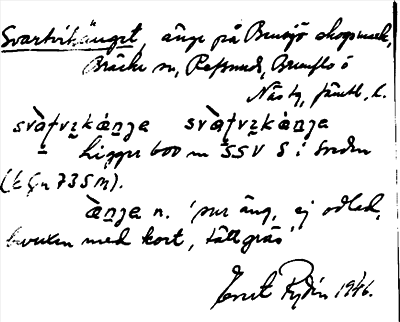 Svartvikänget, änge på Bensjö skogsmark,
Bräcke sn, Refsunds, Brunflo o
Näs tg, Jämtl. l.
svàtvikáṉje svàtvikàṉje
Ligger 600 m SSV S i Sveden
(k G n 735 m).
àṉje n. 'sur äng, ej odled,
bevuxen med kort, tätt gräs'
Ernst Rydén 1946.